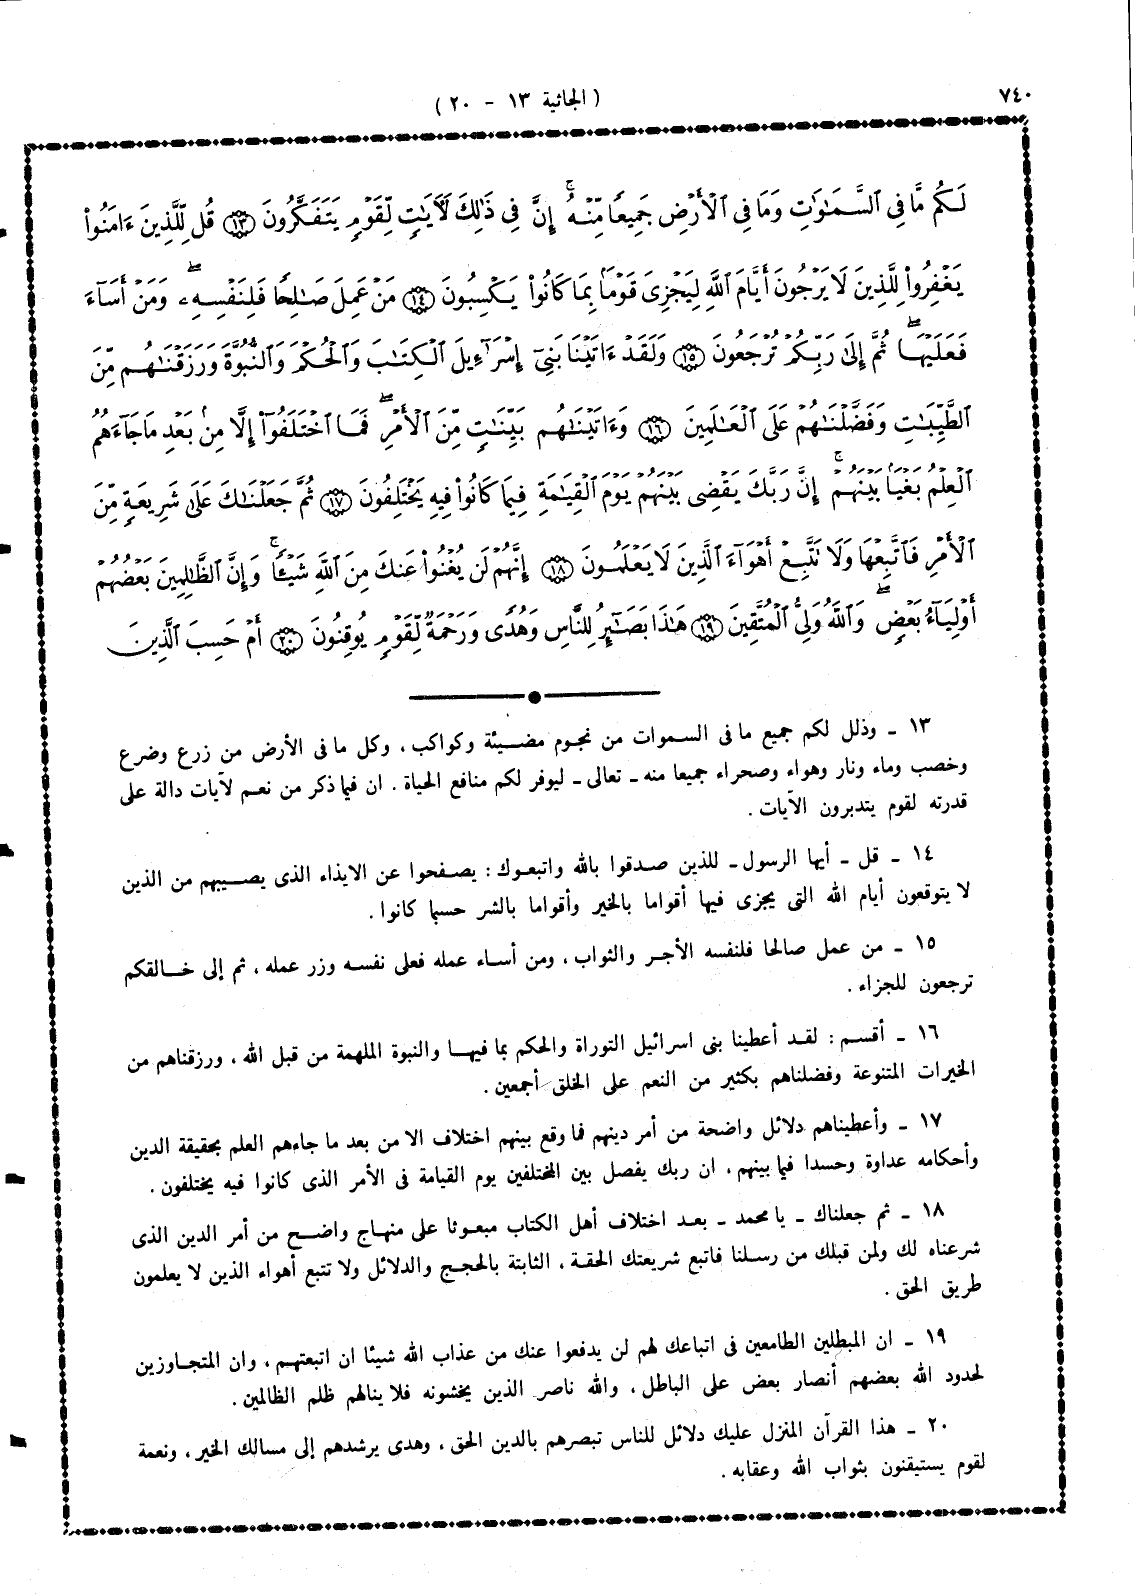 ٧٤٠
( الجاثية ١٣ - ٢٠ )
لَكُم مَّا فِى ٱلسَّمَـٰوَٰتِ وَمَا فِى ٱلْأَرْضِ جَمِيعًا مِّنْهُ ۚ إِنَّ فِى ذَٰلِكَ لَـَٔايَـٰتٍ لِّقَوْمٍ يَتَفَكَّرُونَ ١٣ قُل لِّلَّذِينَ ءَامَنُوا۟
يَغْفِرُوا۟ لِلَّذِينَ لَا يَرْجُونَ أَيَّامَ ٱللَّهِ لِيَجْزِىَ قَوْمًۢا بِمَا كَانُوا۟ يَكْسِبُونَ ١٤ مَنْ عَمِلَ صَـٰلِحًا فَلِنَفْسِهِۦ ۖ وَمَنْ أَسَآءَ
فَعَلَيْهَا ۖ ثُمَّ إِلَىٰ رَبِّكُمْ تُرْجَعُونَ ١٥ وَلَقَدْ ءَاتَيْنَا بَنِىٓ إِسْرَـٰٓءِيلَ ٱلْكِتَـٰبَ وَٱلْحُكْمَ وَٱلنُّبُوَّةَ وَرَزَقْنَـٰهُم مِّنَ
ٱلطَّيِّبَـٰتِ وَفَضَّلْنَـٰهُمْ عَلَى ٱلْعَـٰلَمِينَ ١٦ وَءَاتَيْنَـٰهُم بَيِّنَـٰتٍ مِّنَ ٱلْأَمْرِ ۖ فَمَا ٱخْتَلَفُوٓا۟ إِلَّا مِنۢ بَعْدِ مَا جَآءَهُمُ
ٱلْعِلْمُ بَغْيًۢا بَيْنَهُمْ ۚ إِنَّ رَبَّكَ يَقْضِى بَيْنَهُمْ يَوْمَ ٱلْقِيَـٰمَةِ فِيمَا كَانُوا۟ فِيهِ يَخْتَلِفُونَ ١٧ ثُمَّ جَعَلْنَـٰكَ عَلَىٰ شَرِيعَةٍ مِّنَ
ٱلْأَمْرِ فَٱتَّبِعْهَا وَلَا تَتَّبِعْ أَهْوَآءَ ٱلَّذِينَ لَا يَعْلَمُونَ ١٨ إِنَّهُمْ لَن يُغْنُوا۟ عَنكَ مِنَ ٱللَّهِ شَيْـًٔا ۚ وَإِنَّ ٱلظَّـٰلِمِينَ بَعْضُهُمْ
أَوْلِيَآءُ بَعْضٍ ۖ وَٱللَّهُ وَلِىُّ ٱلْمُتَّقِينَ ١٩ هَـٰذَا بَصَـٰٓئِرُ لِلنَّاسِ وَهُدًى وَرَحْمَةٌ لِّقَوْمٍ يُوقِنُونَ ٢٠ أَمْ حَسِبَ ٱلَّذِينَ
١٣ ـ وذلل لكم جميع ما فى السموات من نجوم مضيئة وكواكب ، وكل ما فى الأرض من زرع وضرع
وخصب وماء ونار وهواء وصحراء جميعا منه ـ تعالى ـ ليوفر لكم منافع الحياة . ان فيما ذكر من نعم لآيات دالة على
قدرته لقوم يتدبرون الآيات .
١٤ ـ قل ـ أيها الرسول ـ للذين صدقوا بالله واتبعوك : يصفحوا عن الايذاء الذى يصيبهم من الذين
لا يتوقعون أيام الله التى يجزى فيها أقواما بالخير وأقواما بالشر حسبما كانوا .
١٥ ـ من عمل صالحا فلنفسه الأجر والثواب ، ومن أساء عمله فعلى نفسه وزر عمله ، ثم إلى خالقكم
ترجعون للجزاء .
١٦ ـ أقسم : لقد أعطينا بنى اسرائيل التوراة والحكم بما فيها والنبوة الملهمة من قبل الله ، ورزقناهم من
الخيرات المتنوعة وفضلناهم بكثير من النعم على الخلق أجمعين .
١٧ ـ وأعطيناهم دلائل واضحة من أمر دينهم فما وقع بينهم اختلاف الا من بعد ما جاءهم العلم بحقيقة الدين
وأحكامه عداوة وحسدا فيما بينهم ، ان ربك يفصل بين المختلفين يوم القيامة فى الأمر الذى كانوا فيه يختلفون .
١٨ ـ ثم جعلناك ـ يا محمد ـ بعد اختلاف أهل الكتاب مبعوثا على منهاج واضح من أمر الدين الذى
شرعناه لك ولمن قبلك من رسلنا فاتبع شريعتك الحقة ، الثابتة بالحجج والدلائل ولا تتبع أهواء الذين لا يعلمون
طريق الحق .
١٩ ـ ان المبطلين الطامعين فى اتباعك لهم لن يدفعوا عنك من عذاب الله شيئا ان اتبعتهم ، وان المتجاوزين
لحدود الله بعضهم أنصار بعض على الباطل ، والله ناصر الذين يخشونه فلا ينالهم ظلم الظالمين .
٢٠ ـ هذا القرآن المنزل عليك دلائل للناس تبصرهم بالدين الحق ، وهدى يرشدهم إلى مسالك الخير ، ونعمة
لقوم يستيقنون بثواب الله وعقابه .